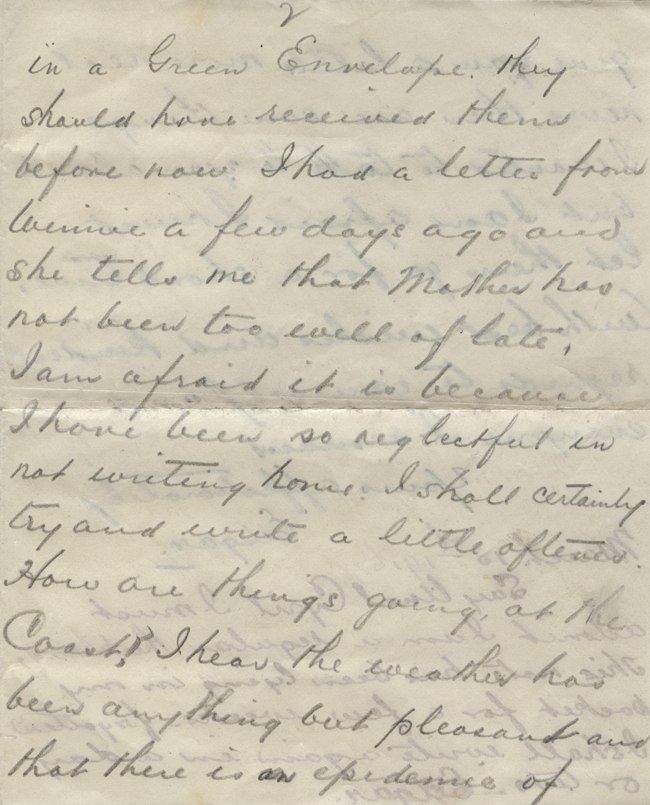 2
in a Green Envelope. they
should have received them
before now. I had a letter from
Winnie a few days ago and
she tells me that Mother has
not been too well of late,
I am afraid it is because
I have been so neglectful in
not writing home. I shall certainly
try and write a little oftener.
How are things going, at the
Coast? I hear the weather has
been anything but pleasant and
that there is an epidemic of